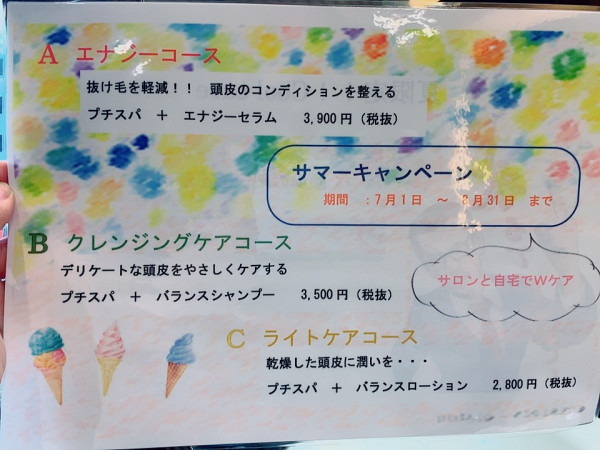 A エナジーコース
抜け毛を軽減！！ 頭皮のコンディションを整える
プチスパ ＋ エナジーセラム 3,900円（税抜）
サマーキャンペーン
期間 ：7月1日 ～ 8月31日 まで
B クレンジングケアコース
デリケートな頭皮をやさしくケアする
プチスパ ＋ バランスシャンプー 3,500円（税抜）
サロンと自宅でWケア
C ライトケアコース
乾燥した頭皮に潤いを・・・
プチスパ ＋ バランスローション 2,800円（税抜）